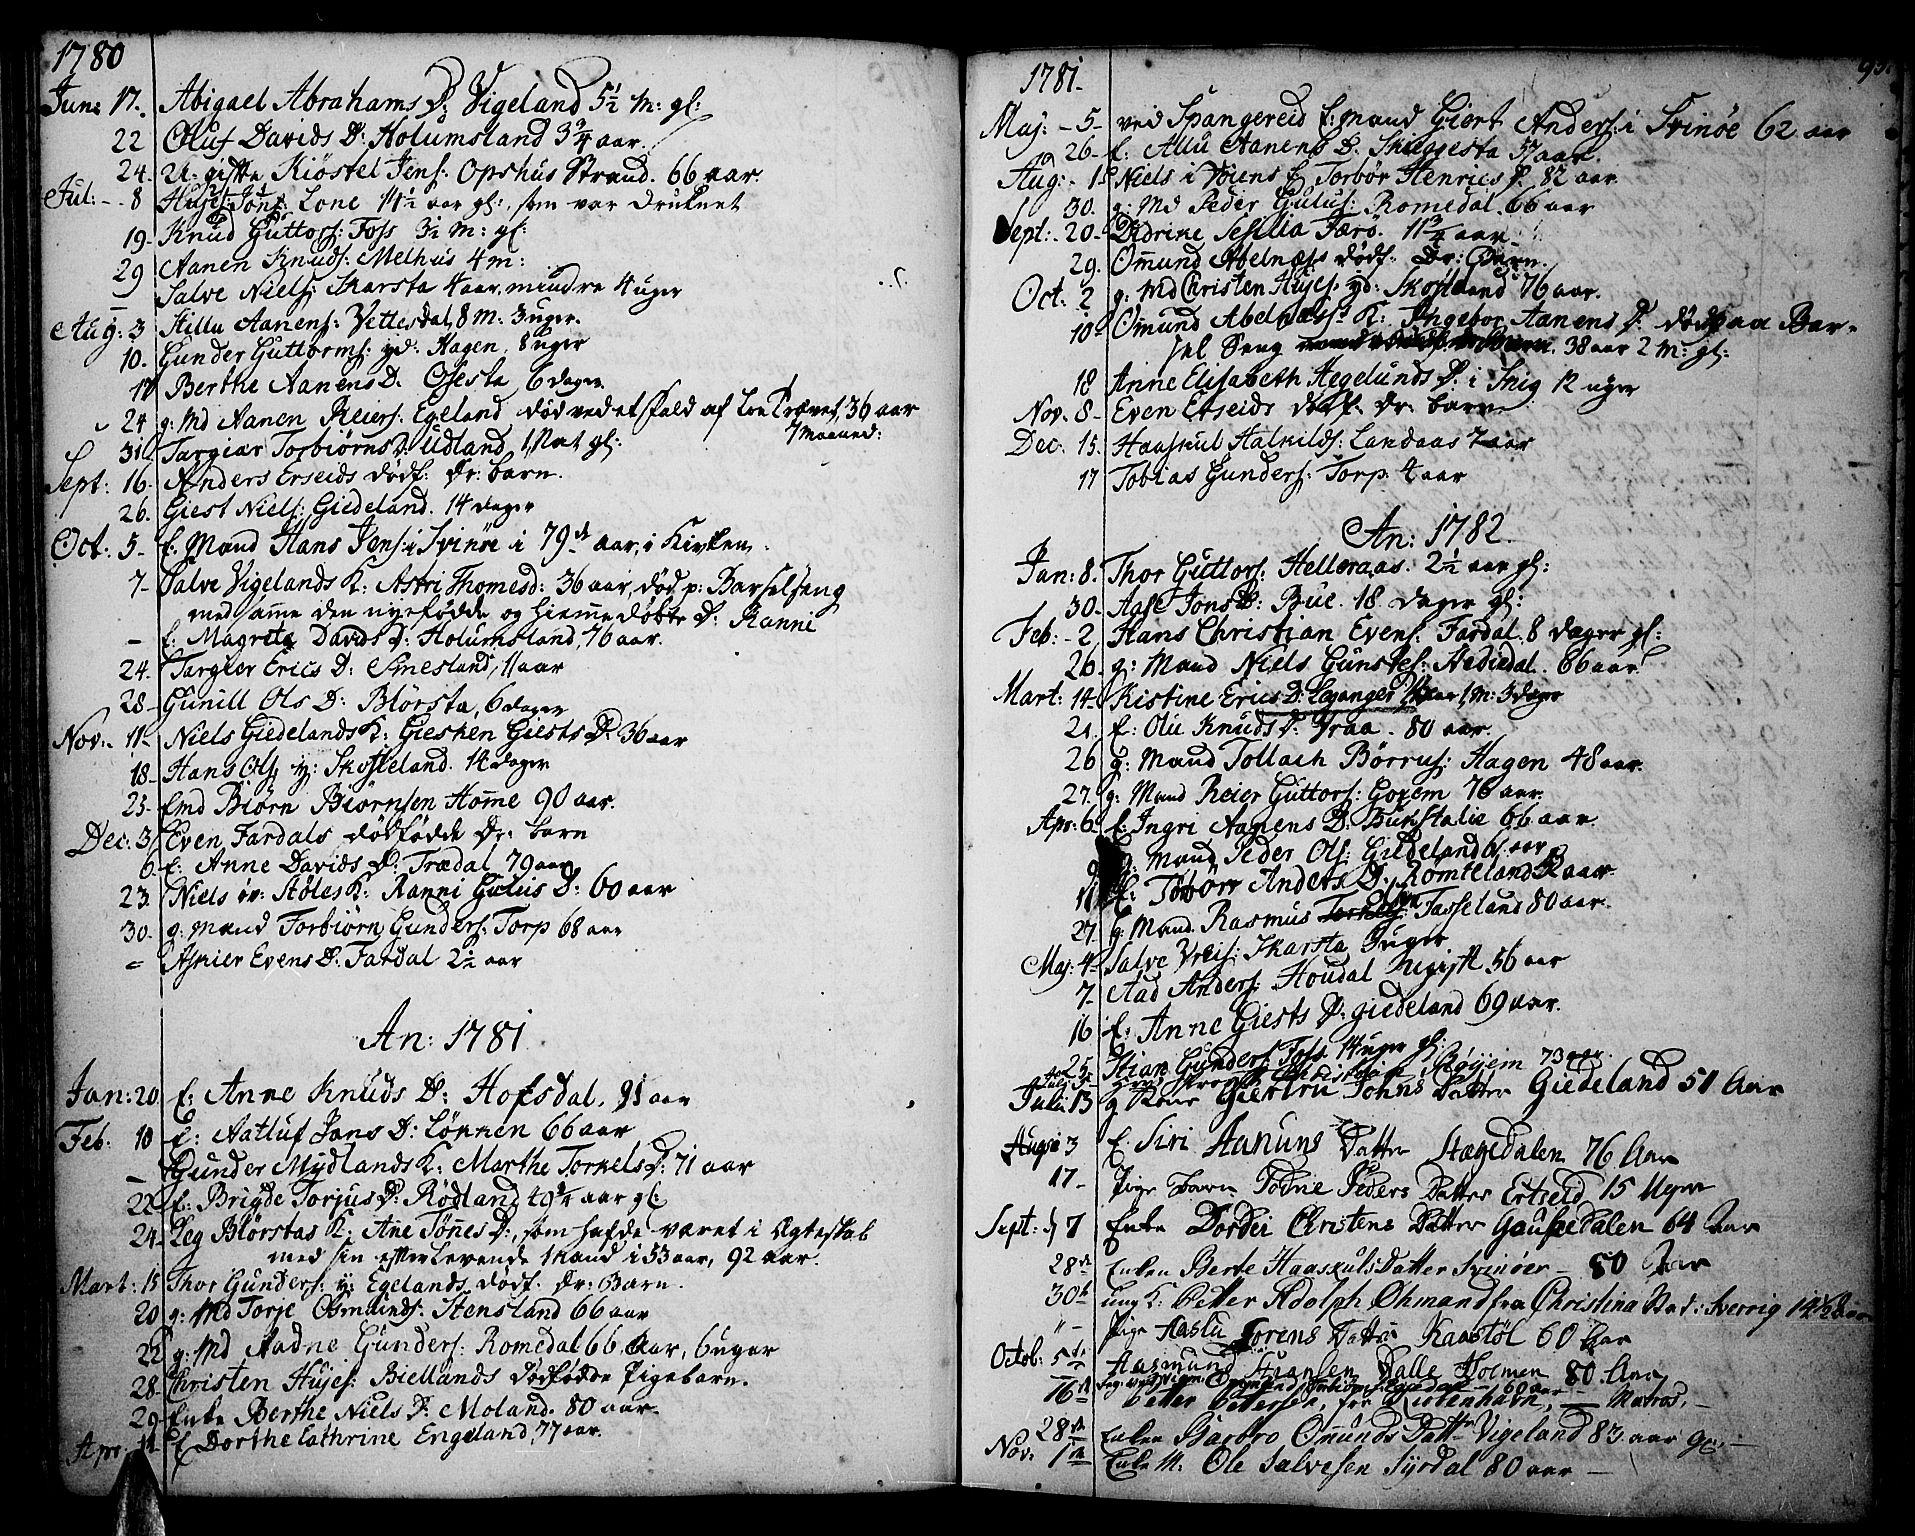 1780
Jun: 17. Abigael Abrahams D: Vigeland 5½ M: gl:
22 Oluf Davids D: Holumsland 3¾ aar.
24. U-gifte Kiøstel Jens: Opshus Strand. 66 aar.
Jul: - 8 Lone 14½ aar gl:, som var druknet
19- Knud Guttors: Foss 3½ M: gl:
29 Aanen Knuds: Melhus 4 m:
– Salve Niels: Skarsta 4 aar, mindre 4 uger
Aug: 3 Aanens: Vettesdal, 8 M: 3 uger.
10. Gunder Guttorms: yd: Hagen, 8 uger
17 Berthe Aanens D. Osesta 6 dager
24 g: Md Aanen Reiers: Egeland død ved et fald af 36 aar
7 Maaned:
31 Targiær Torbiørns D: Udland 1 Nat gl:
Sept: 16- Anders Erseids dødf: Dr: barn.
26. Giest Niels: Giedeland. 14 dager
Oct: 5- E. Mand Hans Jens: i Svinøe i 79de aar, i Kirken.
7- Salve Vigelands K: Astri Thomesd: 36 aar, død p: Barselseng
med samme den nyefødde og hiemedøbte D: Ranni
– E: Magreta Davids D: Holumsland, 76 aar.
24. Targier Erics D: Smesland, 11 aar
28- Gunill Ols D: Blørsta, 6 dager
Nov: 11- Niels Giedelands K: Giesken Giests D. 36 aar
18- Hans Ols: y: Skofteland. 14 dager
25- Emd Biørn Biørnsen Home 90 aar.
Dec: 3 Even Fardals dødfødde Dr: barn
6. E: Anne Davids D: Trædal 79 aar
23 Niels Støles K: Ranni Gulus D: 60 aar
30. g: Mand Torbiørn Gunders: Torp 68 aar
– Evens D: Fardal 2½ aar
An: 1781
Jan: 20 E: Anne Knuds D: Hofsdal. 91 aar
Feb: 10 E: Aatluf Jans D: Lønnen 66 aar
– Gunder Mydlands K: Marthe Torkels D: 71 aar
22 E: Brigde Torjus D: Rødland 49¾ aar gl:
24 Leg Blørstas K: Ane Tønes D:, som hafde været i Egteskab
med sin efterlevende Mand i 53 aar, 92 aar.
Mart: 15 Thor Gunders: y: Egelands dødf: Dr: Barn.
20 g: Md Torje Osmunds: Stensland 66 aar
22 g: Md Aadne Gunders: Romedal 66 Aar, 6 uger
28. Christen Hujes: Biellands dødfødde Pigebarn.
29 Enke Berthe Niels D: Moland. 80 aar.
Apr: 11 E Dorthe Cathrine Engeland, 77 aar.
1781-
Maj: - 5- ved Spangereid E: Mand Giert Anders: i Svinøe 62 aar
26- E: Aanens D: Skieggesta 57 aar.
Aug: - 15 Niels i Voiens E Torbør Henrics D. 82 aar
30. g: Md Peder Gulus: Romedal. 66 aar
Sept: - 20- Didrike Sesilia Færø. 11¾ aar
29. Omund Abelnæss dødf: Dr: Barn.
Oct: 2 g: Md Christen Hujes: yd: Skofteland 76 aar.
10- Omund Abelnæss K: Ingebor Aanens D: død paa Bar-
sel Seng 38 aar 2 M: gl:
18 Anne Elisabeth Aegelunds D: i Snig 12 uger
Nov. 8- Even Erseids dødf: Dr: barn
Dec: 15. Haaskul Halkilds: Landaas 7 aar
17 Tobias Gunders: Torp. 4 aar
An: 1782
Jan: 8. Thor Guttors: Helleraas. 2½ aar gl:
30- Aase Jons D: Bue. 18 dager gl:
Feb: - 2 Hans Christian Evens: Fardal. 8 dager gl:
26. g: Mand Niels Gunstes: Hediedal. 86 aar.
Mart: 14- Kistine Erics D: Leganger 1 M: 3 dager
21. E: Oli Knuds D: Fraa. 80 aar.
26 g: Mand Tollach Børrus: Hagen 48 aar.
27. g: Mand Reier Guttors: Goxem 76 aar.
Apr: 6- E: Ingri Aanens D: Burstalie 66 aar
9 g: Mand Peder Ols: Giedeland 6. aar
11 E: Tobørr Anders D: Romteland aar.
27. g: Mand. Rasmus Tasseland 80 aar.
Maj: 4- Salve Skarsta uger
7- Aad Anders: Houdal ugift 56 aar
16 E: Anne Giests D: Giedeland 69 aar.
25- Stian Gunders: Foss. 14 uger gl:
Christian Røyem 73 aar.
Julii 13 g Kone Giertru Johns Datter Giedeland 51 Aar
Augs: 3 E. Siri Aanuns Datter Stægedalen 76 Aar
17- Pige Barn Todne Peders Datter Ertseid 15 Uger
Sept: 17 Enke Dordei Christens Datter Gausedalen 64 Aar
28de Enken Berte Haaskuls Datter Svinøer – 80 Aar
30te ung K: Petter Adolph Ohmand fra Christina Stad: Sverrig 14½ Aar
" – Pige Aaslu Sorens Datter Kaastøl 60 Aar
Octob: 5te Aasmund Staansen Dalle Holmen 80 Aar
Omund 60 aar
16de Petter Petersen, fra Kiøbenhavn, – Matros, –
28de Enken Barbro Omunds Datr Vigeland 83 aar gl. –
Nov: 1te Enke M: Ole Salvesen Syrdal 80 aar –